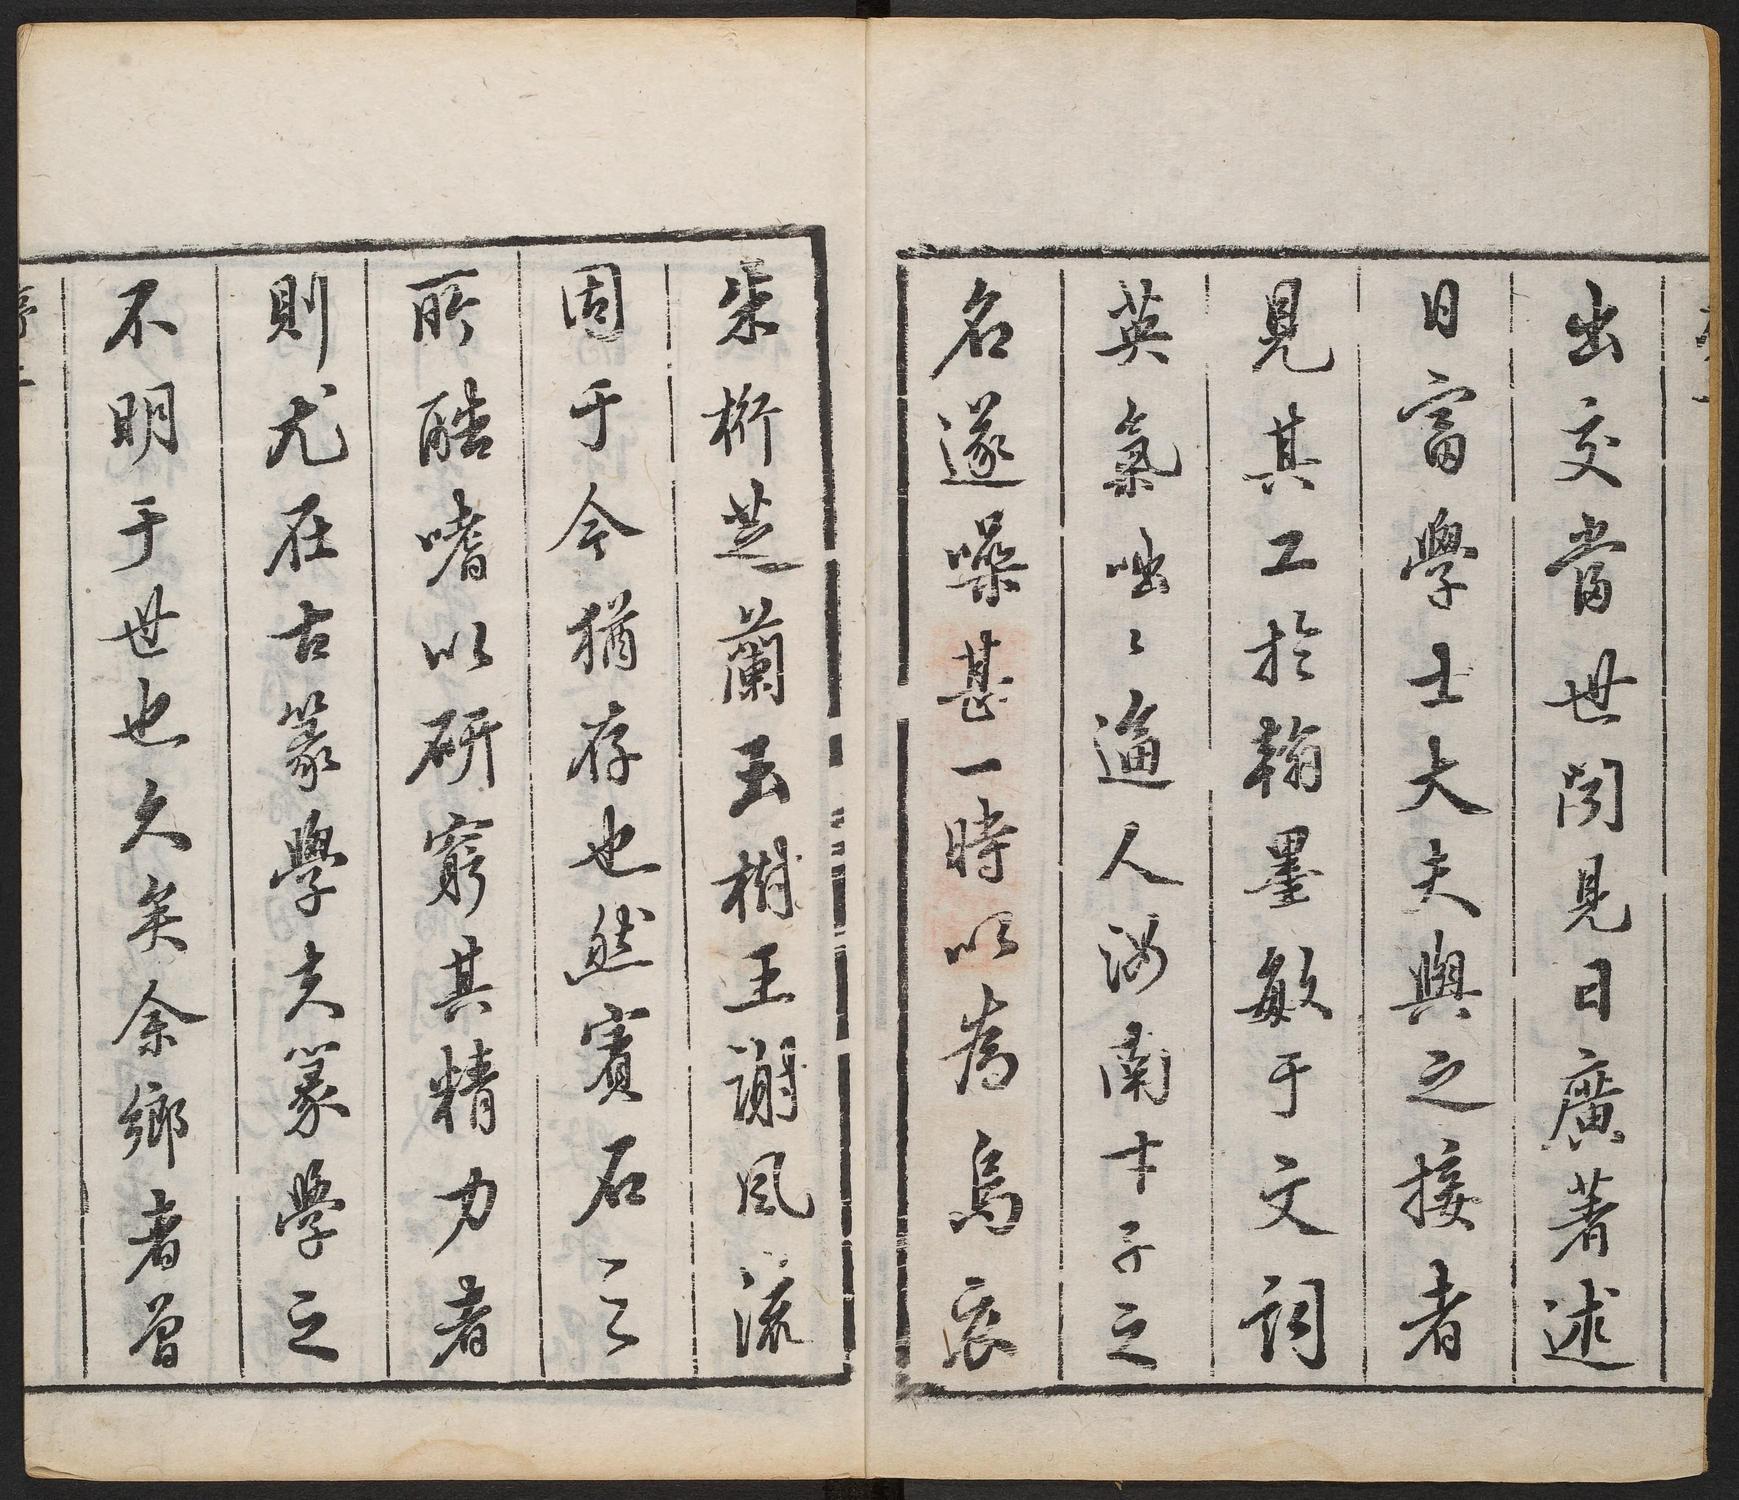 出交當世聞見日廣著述
日富學士大夫與之接者
見其工於翰墨敏于文詞
英氣咄〻逼人海南才子之
名遂噪甚一時以為烏衣
朱桁芝蘭玉樹王謝風流
固于今猶存也然賓石之
所酷嗜以研窮其精力者
則尤在古篆學夫篆學之
不明于世也久矣余鄉者曾